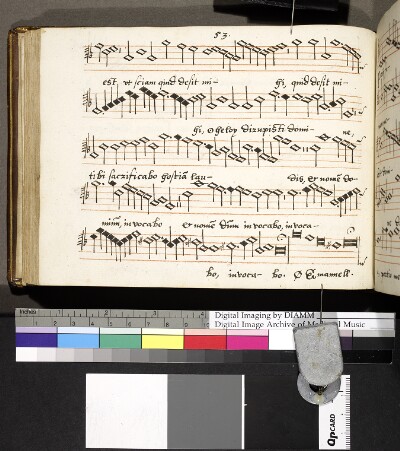 53.
est, ut sciam quid desit mi- hi, quid desit mi-
hi, O heloy dirupisti domi- ne,
tibi sacrificabo hostiā lau- dis, et nomē do-
mini, invocabo et nomē dñi invocabo, invoca-
bo, invoca- bo. O Emanuell.
inches 1 2 3 4
Digital Imaging by DIAMM
Digital Image Archive of Medieval Music
QPCARD